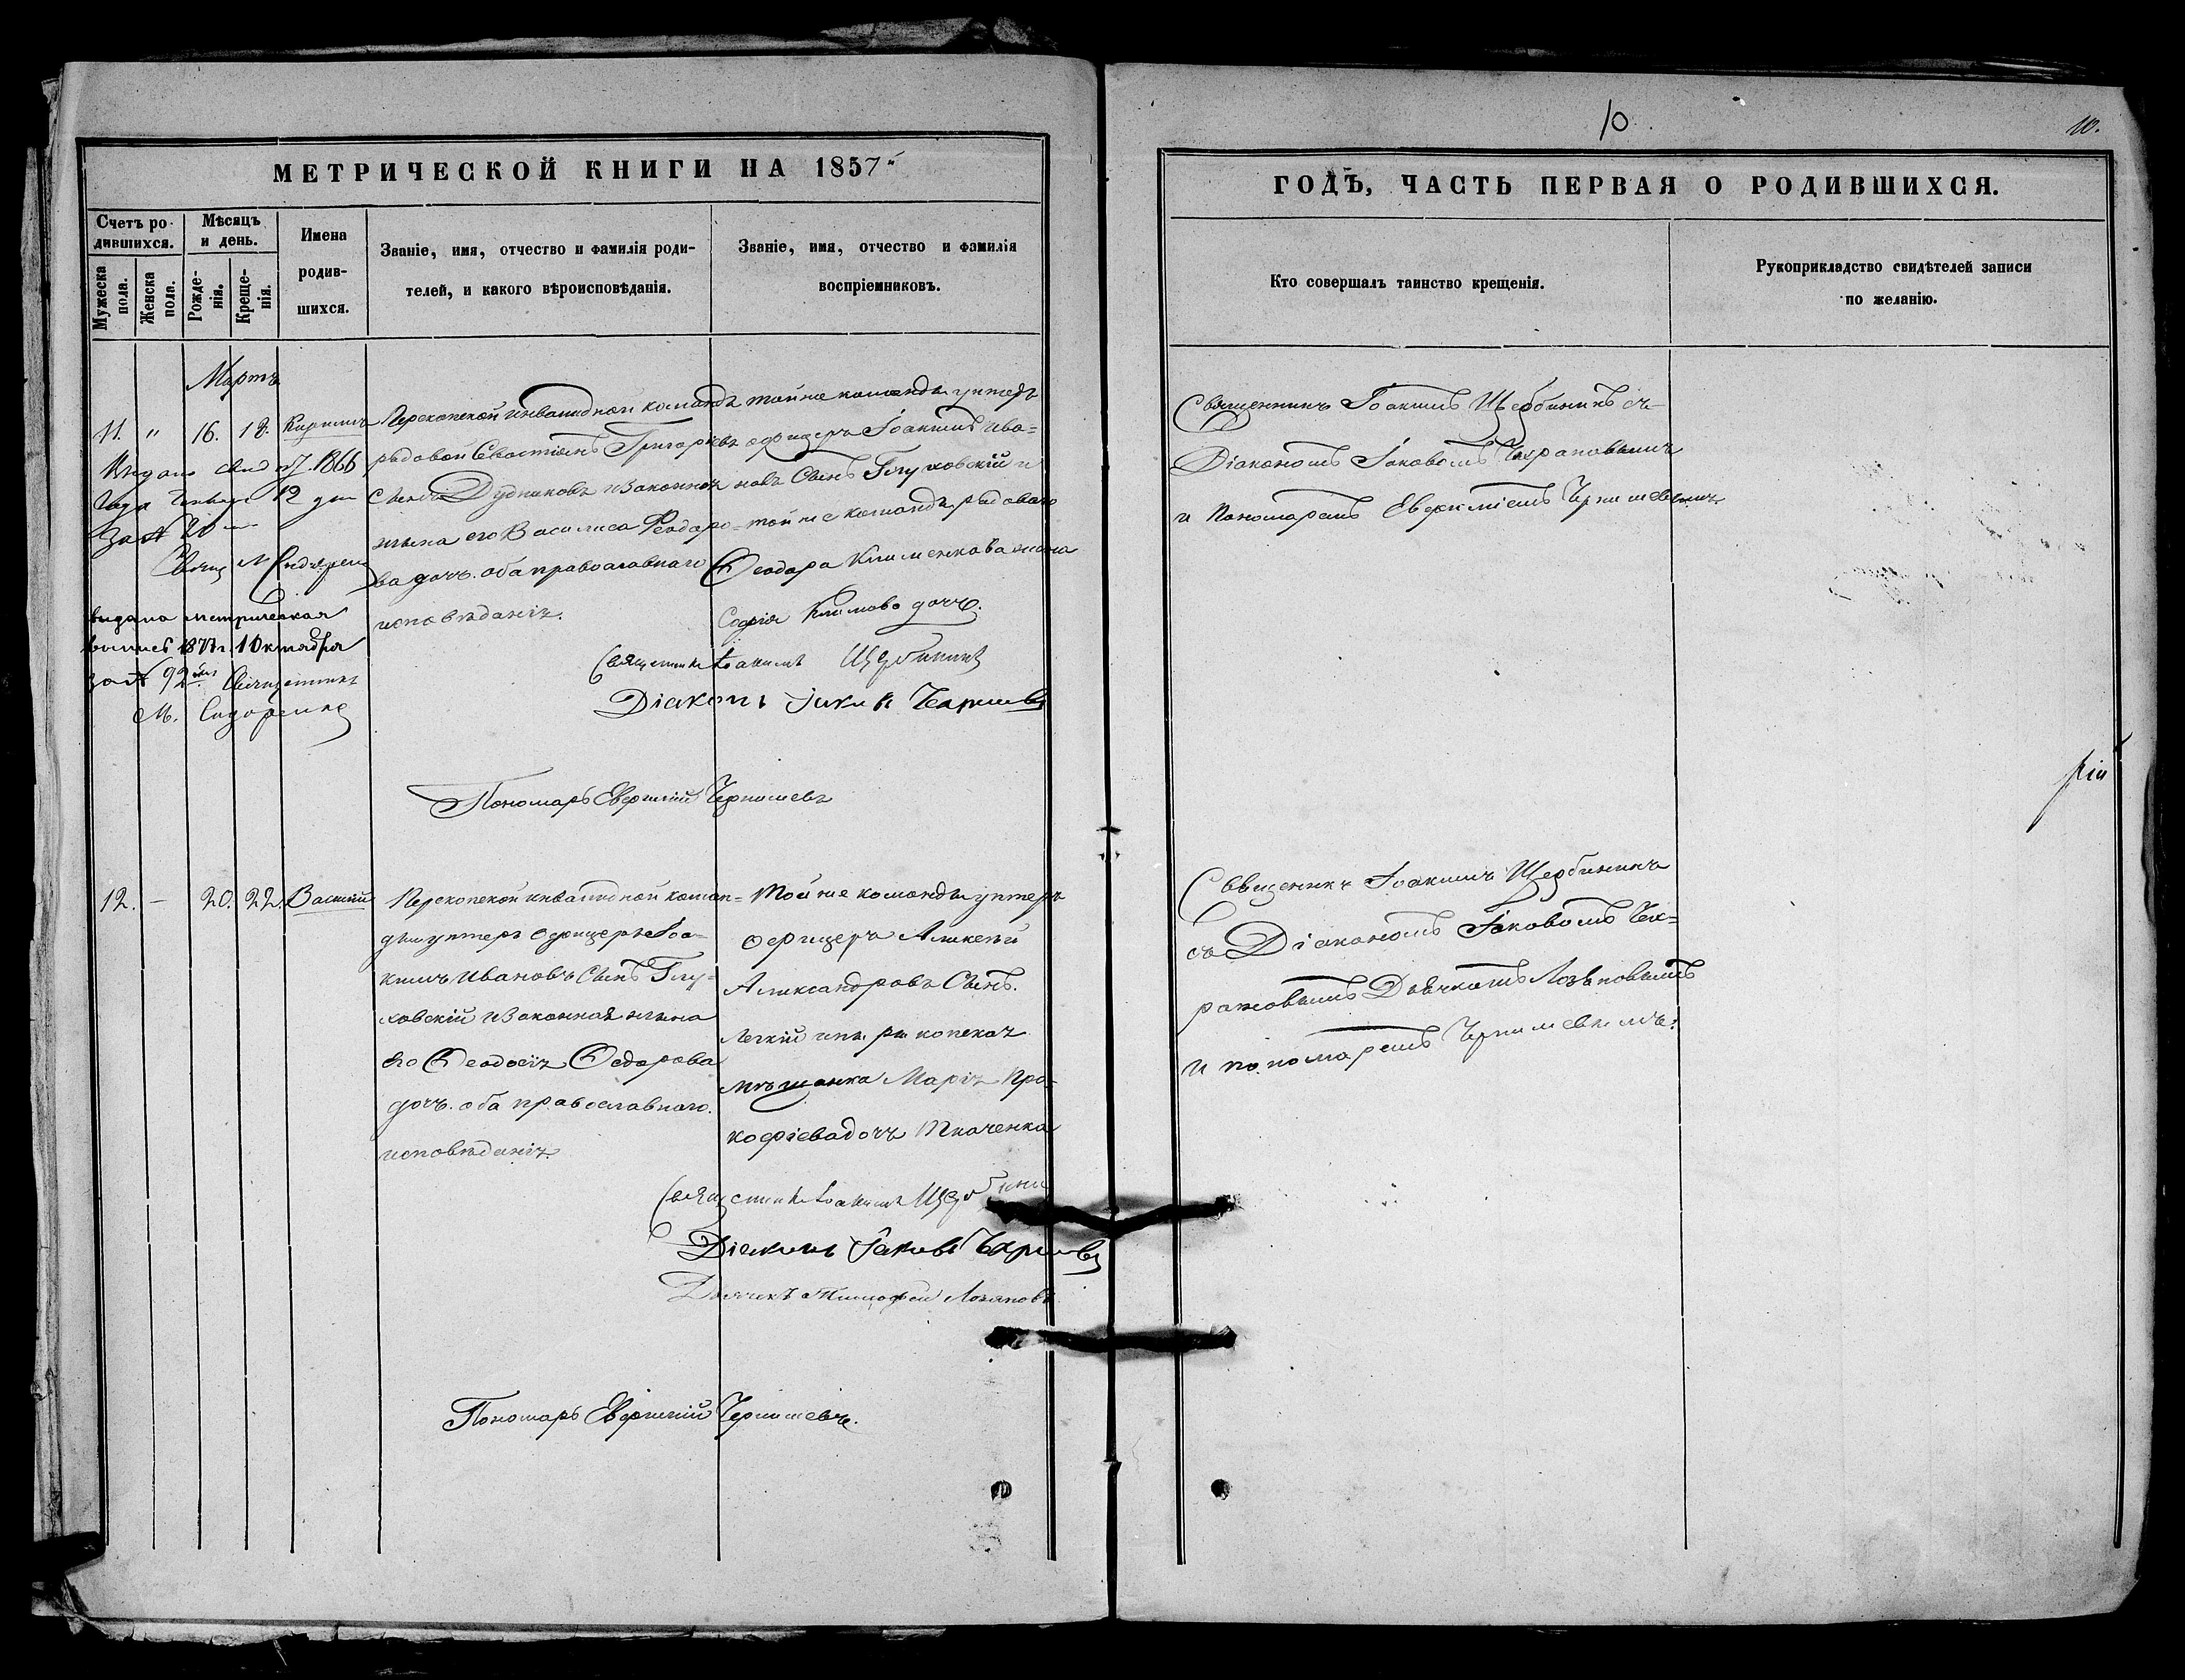 10.
10.
МЕТРИЧЕСКОЙ КНИГИ НА 1857
ГОДЪ, ЧАСТЬ ПЕРВАЯ О РОДИВШИХСЯ.
Счетъ ро-
дившихся.
Мужеска
пола.
Женска
пола.
Мѣсяцъ
и день.
Рожде-
нія.
Креще-
нія.
Имена
родив-
шихся.
Званіе, имя, отчество и фамилія роди-
телей, и какого вѣроисповѣданія.
Званіе, имя, отчество и фамилія
воспріемниковъ.
Кто совершалъ таинство крещенія.
Рукоприкладство свидѣтелей записи
по желанію.
Мартъ
11. " 16. 18. Кирилъ
1866
года 12 дня
за № 20
выдана метрическая
1877 г. 1 Октября
за № 92 Священникъ
М. Сидоренко
Перекопской инвалидной команды
рядовой Севастіянъ Григорьевъ
сынъ Дудниковъ и законная
жена его Василиса Феодоро-
ва дочь. оба православнаго
исповѣданія.
той же команды унтеръ
офицеръ Іоакимъ Ива-
новъ Сынъ Глуховскій и
той же команды рядоваго
Феодора Клименкова жена
Софія Климова дочь.
Священникъ Іоакимъ Щербининъ
Діаконъ Іаковъ
Пономарь Евфимій Чернышевъ
Священникъ Іоакимъ Щербининъ съ
Діакономъ Іаковомъ
и Пономаремъ Евфиміемъ Чернышевымъ
12. - 20. 22. Василій
Перекопской инвалидной коман-
ды унтеръ офицеръ Іоа-
кимъ Ивановъ Сынъ Глу-
ховскій и законная жена
его Феодосія Федорова
дочь. оба православнаго.
исповѣданія.
Той же команды унтеръ
офицеръ Алексѣй
Александровъ Сынъ.
Легкій и
мѣщанка Марія Про-
кофіева дочь Ткаченка
Священникъ Іоакимъ
Діаконъ Іаковъ
Дьячекъ Тимофей
Пономарь Евфимій Чернышевъ.
Священникъ Іоакимъ Щербининъ
съ Діакономъ Іаковомъ
Дьячкомъ
и пономаремъ Чернышевымъ.